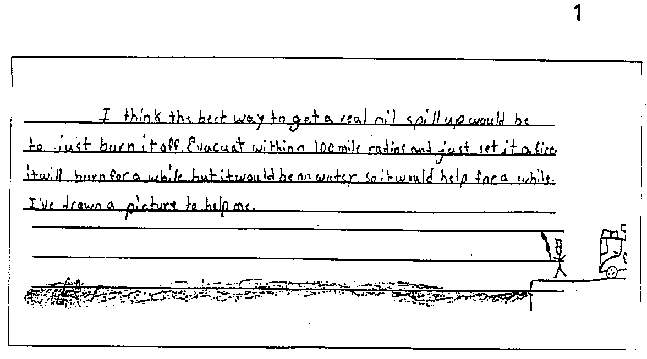 1
I think the best way to get a real oil spill up would be
to just burn it off. Evacuat within a 100 mile radius and just set it a fire
it will burn for a while but it would be on water so it would help for a while.
I've drawn a picture to help me.